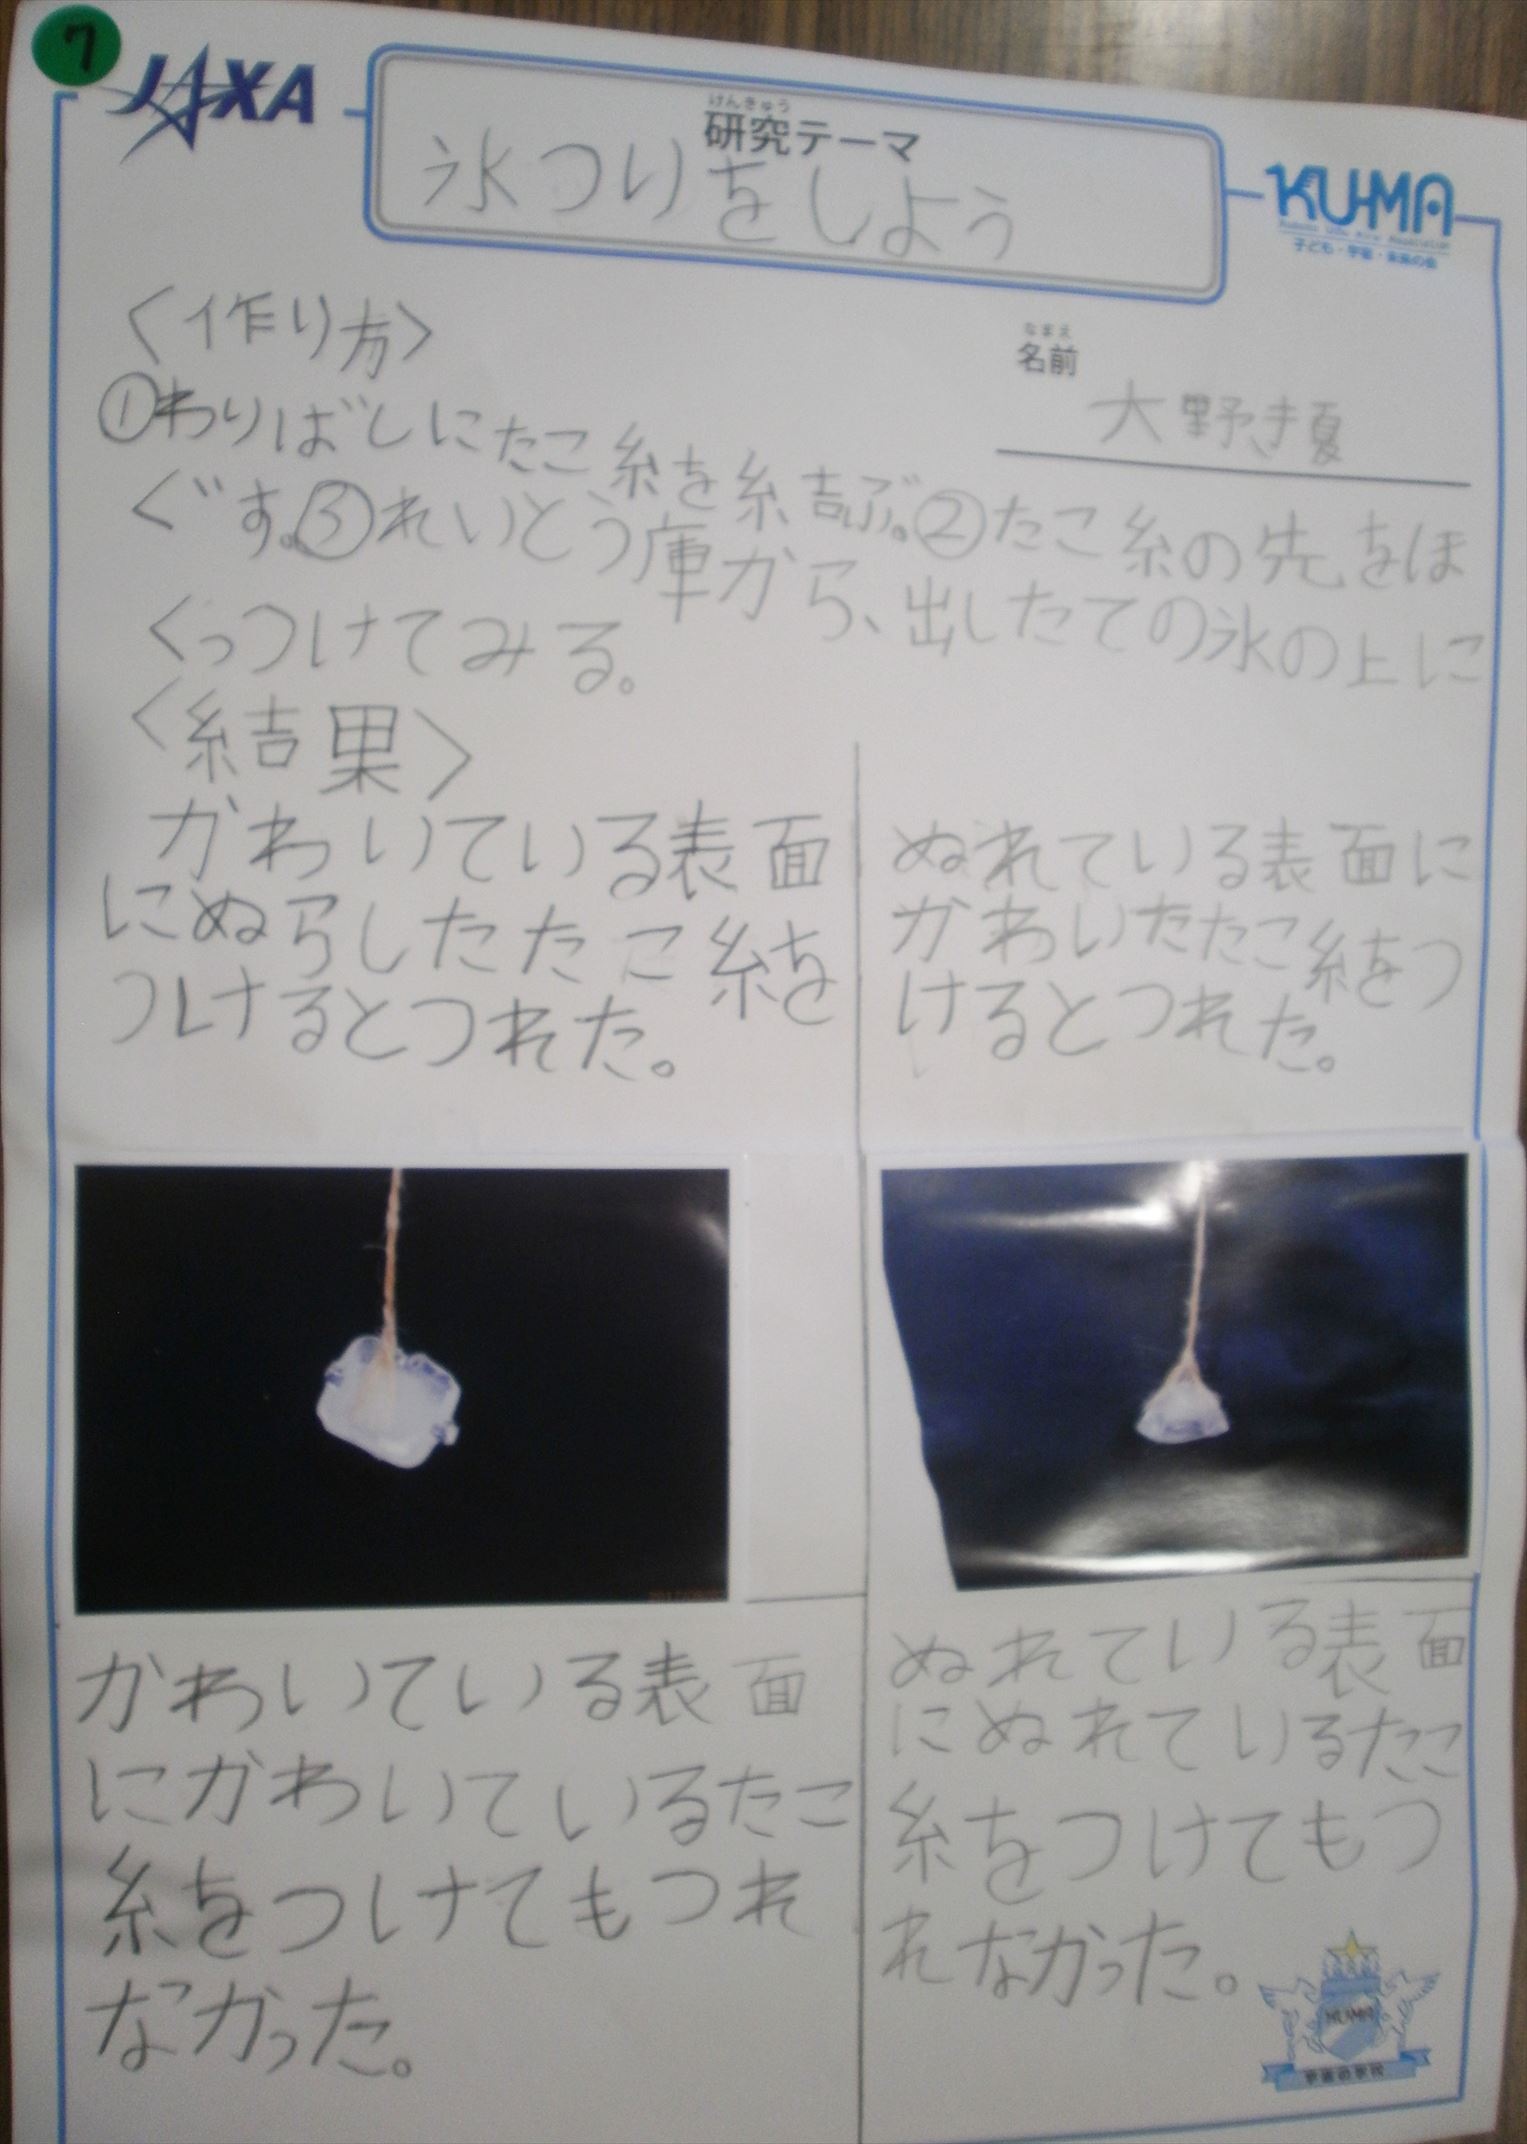 7
JAXA
けんきゅう
研究テーマ
氷つりをしよう
KU-MA
子ども・宇宙・未来の会
<作り方>
なまえ
名前
大野き夏
①わりばしにたこ糸を結ぶ。②たこ糸の先をほ
ぐす。③れいとう庫から、出したての氷の上に
くっつけてみる。
<結果>
かわいている表面
にぬらしたたこ糸を
つけるとつれた。
ぬれている表面に
かわいたたこ糸をつ
けるとつれた。
かわいている表面
にかわいているたこ
糸をつけてもつれ
なかった。
ぬれている表面
にぬれているたこ
糸をつけてもつ
れなかった。
KUMA
宇宙の学校